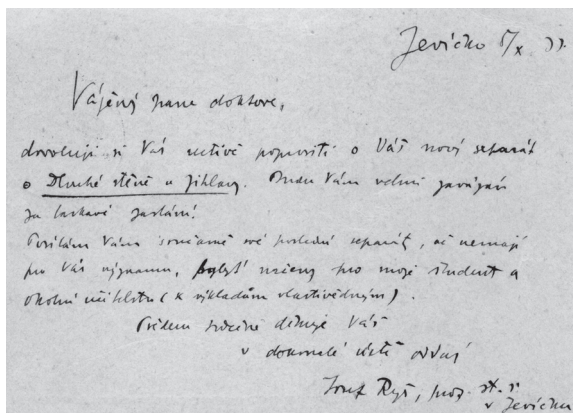 Jevíčko 5/X 33.
Vážený pane doktore,
dovoluji si Vás uctivě poprositi o Váš nový separát
o Dlouhé stěně u Jihlavy. Budu Vám velmi zavázán
za laskavé zaslání!
Posílám Vám současně své poslední separáty, ač nemají
pro Vás významu, byly určeny pro moje studenty a
okolní učitelstvo (k výkladům vlastivědným).
Předem srdečně děkuje Váš
v dokonalé úctě oddaný
Josef Ryš, prof. st. r.
v Jevíčku